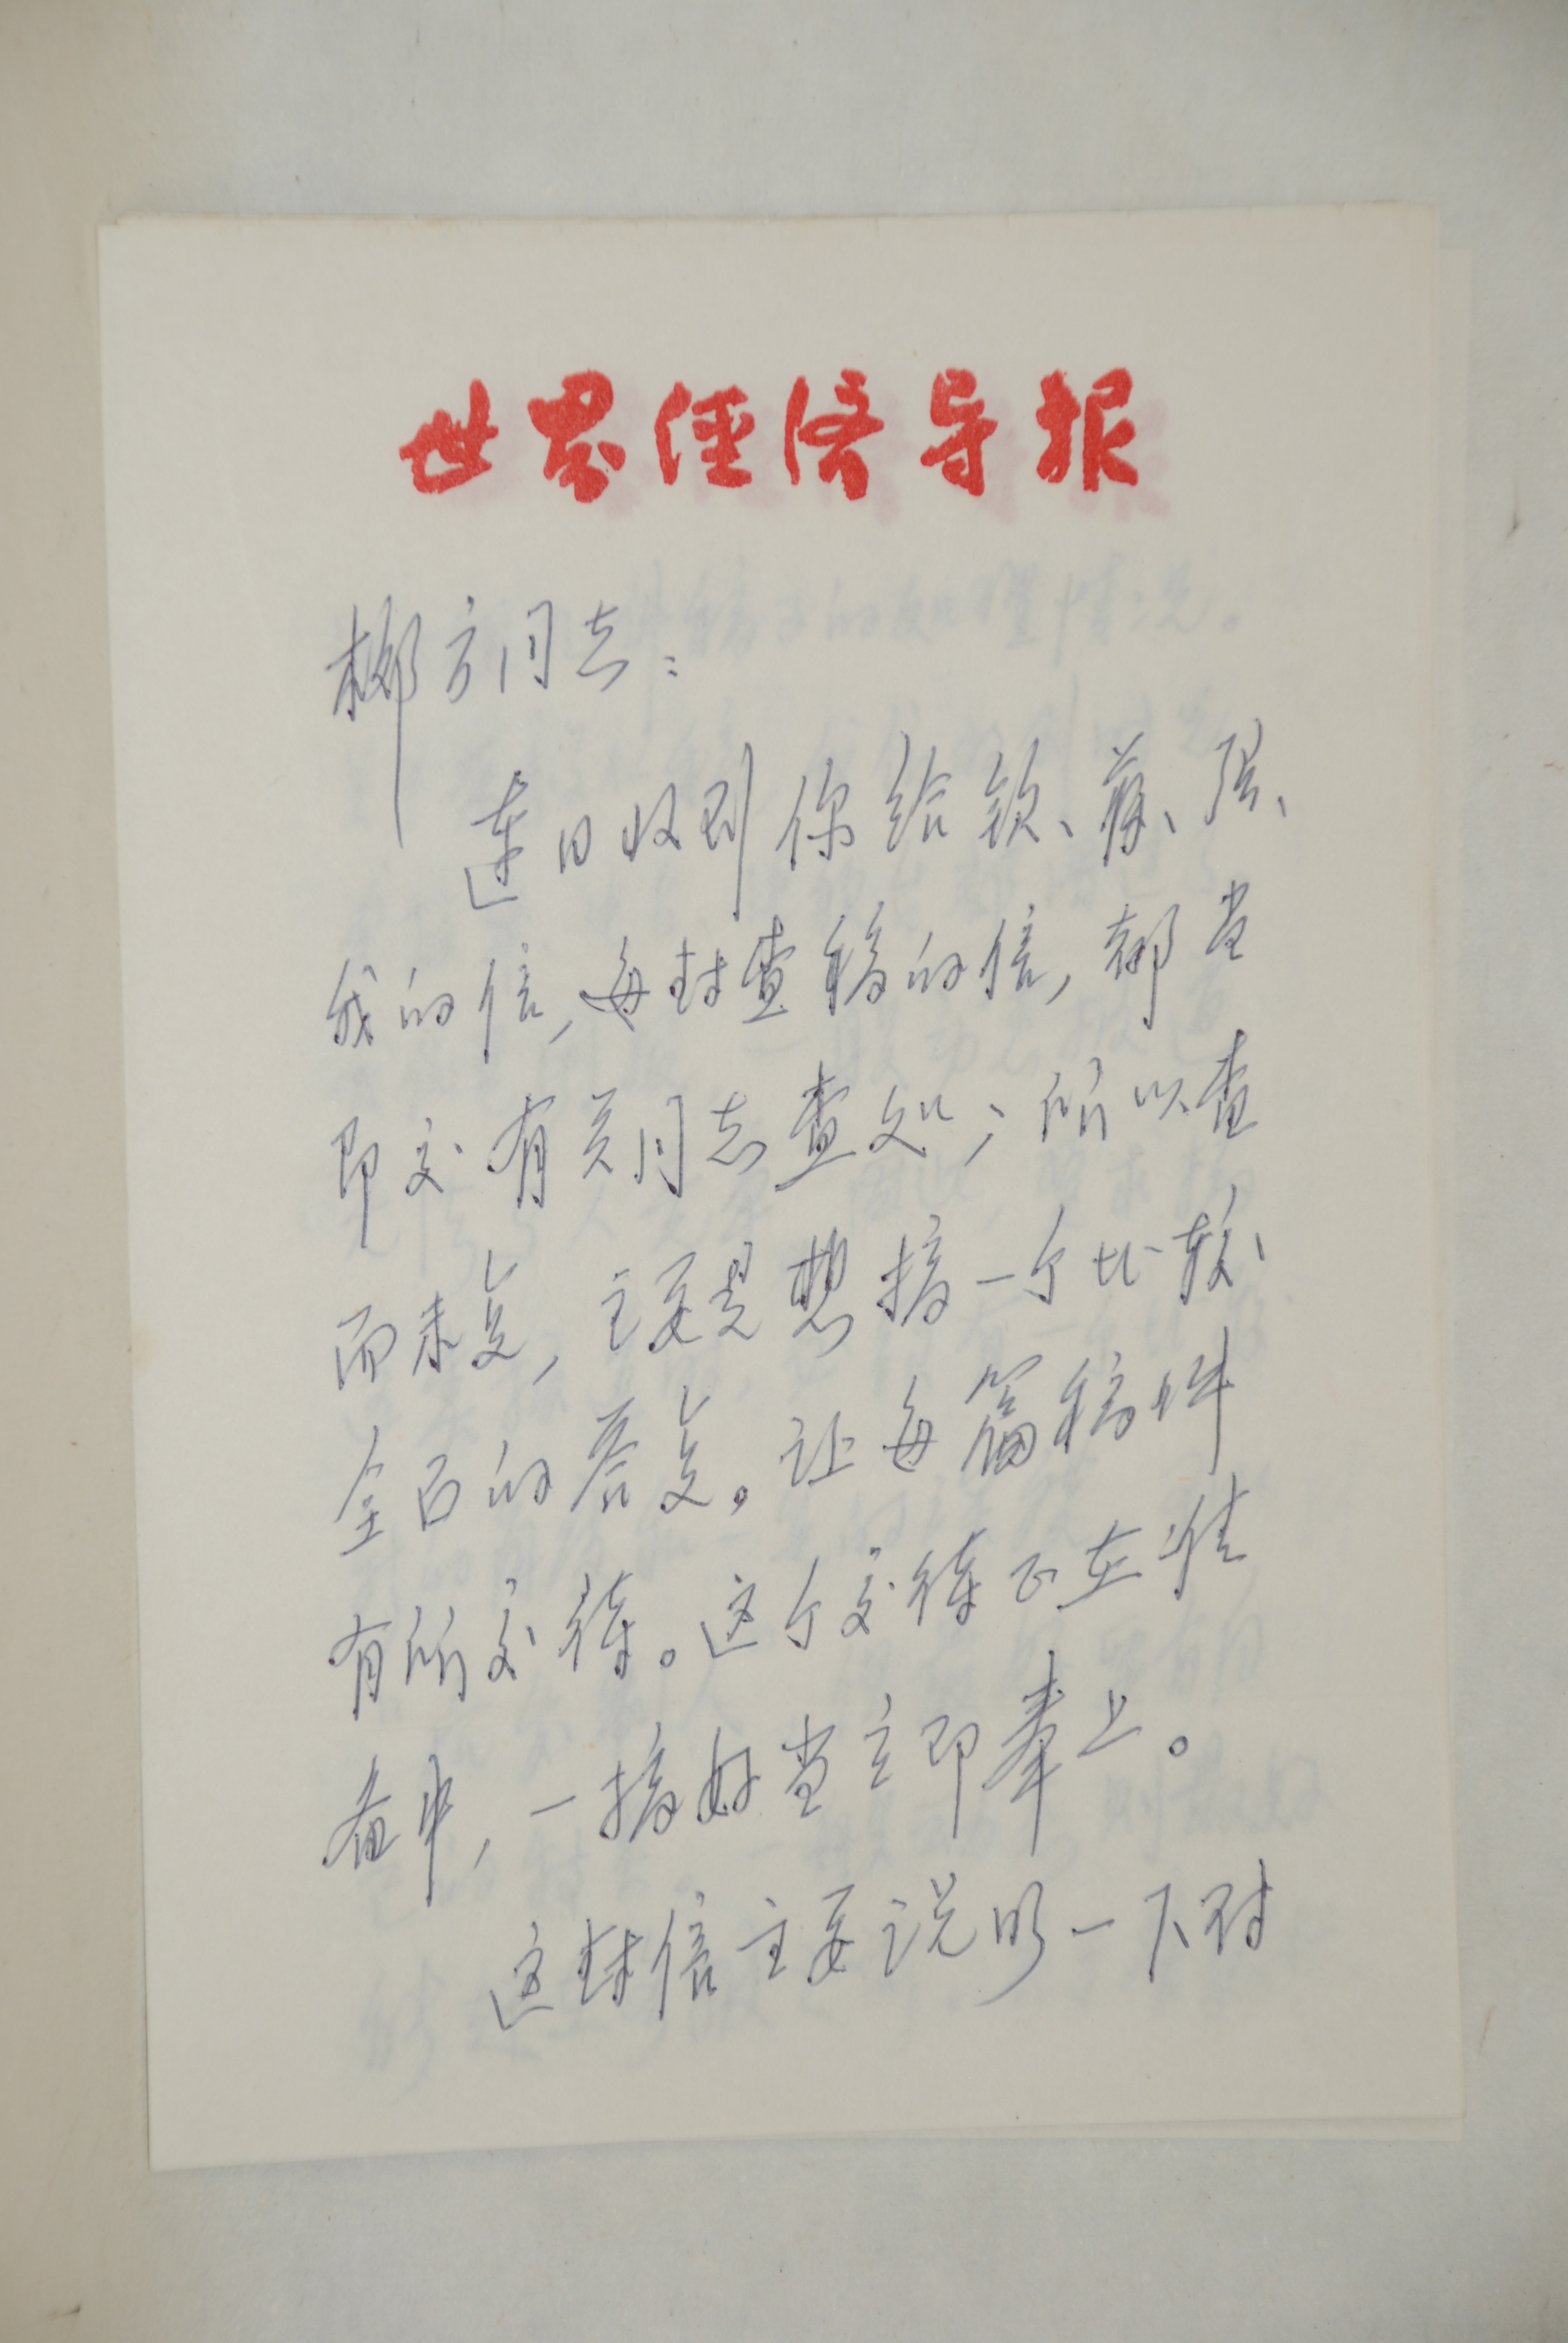 世界经济导报
郴方同志：
连日收到你给钦、苏、张、
我的信，每封查稿的信，都当
即交有关同志查处；所以查
而未复，主要是想搞一个比较
全面的答复。让每篇稿件
有所交待。这个交待正在准
备中，一搞好当立即奉上。
这封信主要说明一下对